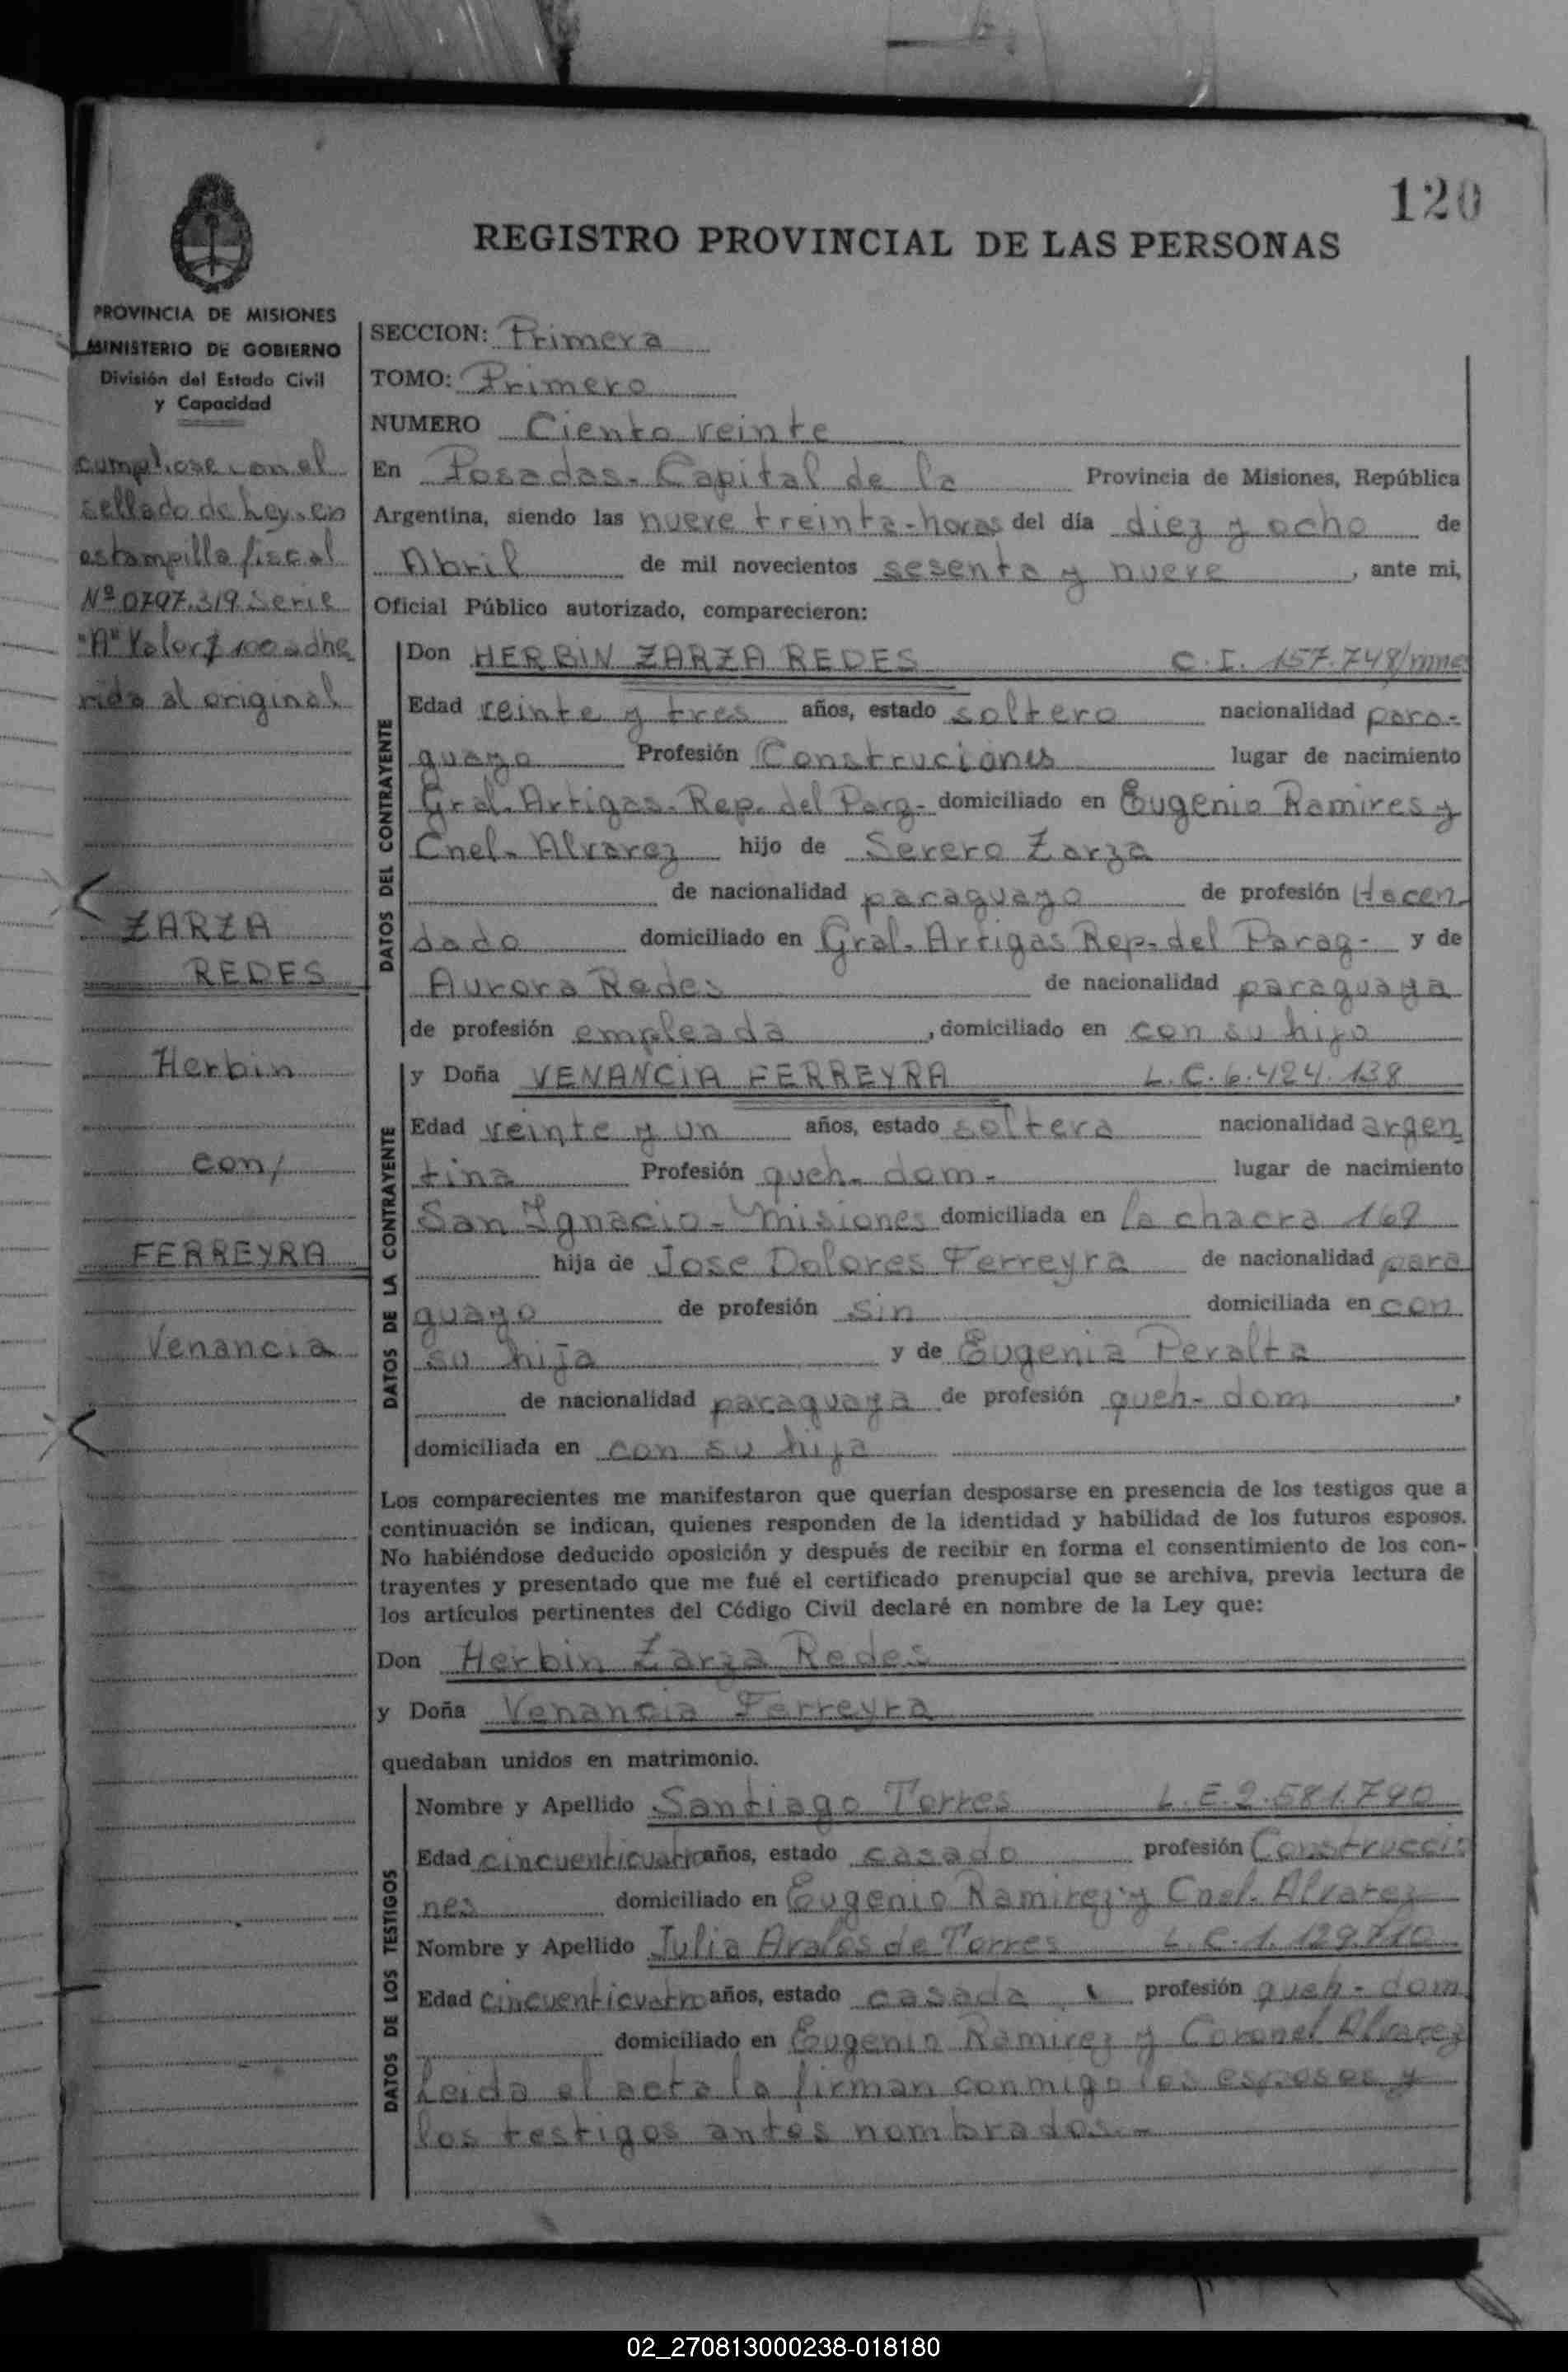 120
REGISTRO PROVINCIAL DE LAS PERSONAS
PROVINCIA DE MISIONES
MINISTERIO DE GOBIERNO
División del Estado Civil
y Capacidad
cumpliose con el
sellado de Ley, en
estampilla fiscal
Nº 0797.319 Serie
"A" Valor $ 100 adhe
rida al original
ZARZA
REDES
Herbin
con/
FERREYRA
Venancia
SECCION: Primera
TOMO: Primero
NUMERO Ciento veinte
En Posadas - Capital de la Provincia de Misiones, República
Argentina, siendo las nueve treinta - horas del día diez y ocho de
Abril de mil novecientos sesenta y nueve, ante mi,
Oficial Público autorizado, comparecieron:
DATOS DEL CONTRAYENTE
Don HERBIN ZARZA REDES C. I. 157.748/mnes
Edad veinte y tres años, estado soltero nacionalidad para-
guayo Profesión Construciones lugar de nacimiento
Gral. Artigas - Rep. del Parg - domiciliado en Eugenio Ramires y
Cnel. Alvarez hijo de Severo Zarza
de nacionalidad paraguayo de profesión Hacen
dado domiciliado en Gral. Artigas Rep. del Parag - y de
Aurora Redes de nacionalidad paraguaya
de profesión empleada, domiciliado en con su hijo
DATOS DE LA CONTRAYENTE
y Doña VENANCIA FERREYRA L. C. 6.424.138
Edad veinte y un años, estado soltera nacionalidad argen
tina Profesión queh. dom - lugar de nacimiento
San Ignacio - Misiones domiciliada en la chacra 169
hija de Jose Dolores Ferreyra de nacionalidad para
guayo de profesión sin domiciliada en con
su hija y de Eugenia Peralta
de nacionalidad paraguaya de profesión queh - dom,
domiciliada en con su hija
Los comparecientes me manifestaron que querían desposarse en presencia de los testigos que a
continuación se indican, quienes responden de la identidad y habilidad de los futuros esposos.
No habiéndose deducido oposición y después de recibir en forma el consentimiento de los con-
trayentes y presentado que me fué el certificado prenupcial que se archiva, previa lectura de
los artículos pertinentes del Código Civil declaré en nombre de la Ley que:
Don Herbin Zarza Redes
y Doña Venancia Ferreyra
quedaban unidos en matrimonio.
DATOS DE LOS TESTIGOS
Nombre y Apellido Santiago Torres L. E. 2.581.790
Edad cincuenticuatro años, estado casado profesión Construccio
nes domiciliado en Eugenio Ramirez y Cnel. Alvarez
Nombre y Apellido Julia Avalos de Torres L. C. 1.129.710
Edad cincuenticuatro años, estado casada profesión queh - dom
domiciliado en Eugenio Ramirez y Coronel Alvarez
Leida el acta la firman conmigo los esposos y
los testigos antes nombrados. -
02_270813000238-018180